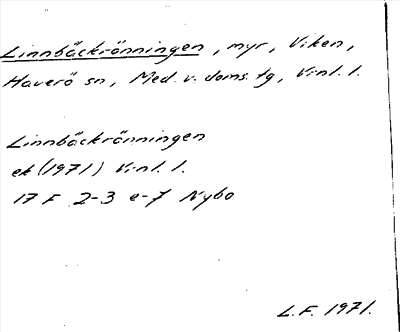 Linnbäckrönningen, myr, Viken,
Haverö sn, Med. v. doms. tg, Vnl. l.
Linnbäckrönningen
ek (1971) Vnl. l.
17 F 2-3 e-f Nybo
L.F. 1971.